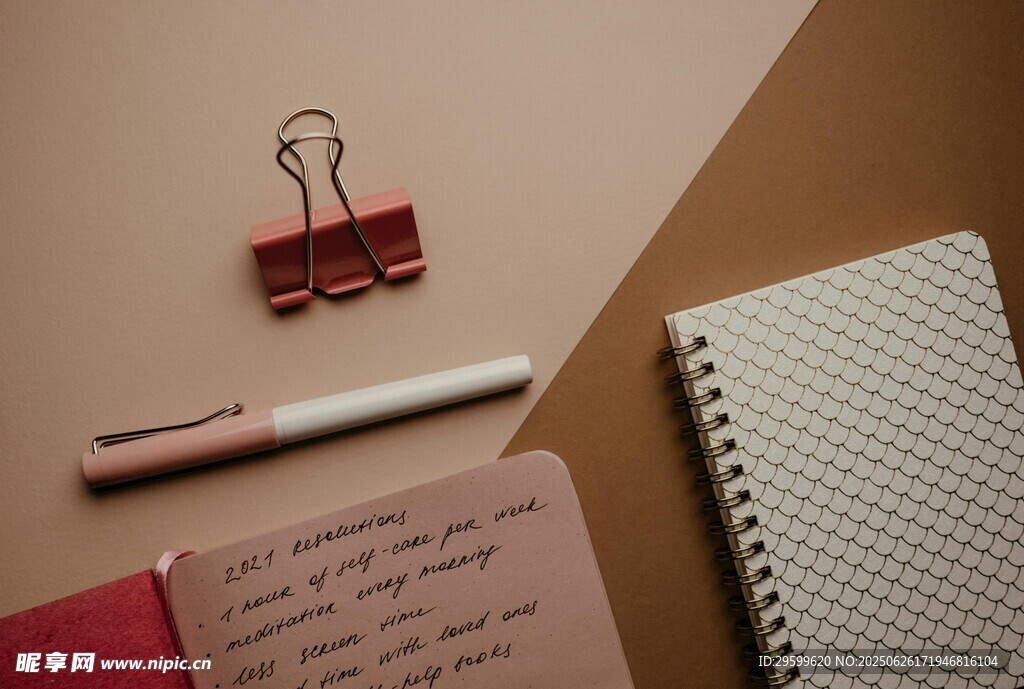 2021 resolutions.
• 1 hour of self-care per week
meditation every morning
• less screen time
time with loved ones
help books.
昵享网 www.nipic.cn
ID:29599620 NO:20250626171946816104